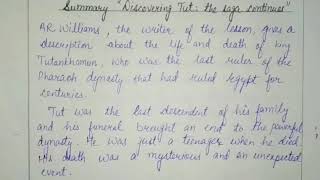 Summary "Discovering Tut: the saga continues"
AR Williams, the writer of the lesson, gives a
description about the life and death of king
Tutankhamun, who was the last ruler of the
Pharaoh dynasty that had ruled Egypt for
centuries.
Tut was the last descendent of his family
and his funeral brought an end to the powerful
dynasty. He was just a teenager when he died.
His death was a mysterious and an unexpected
event.